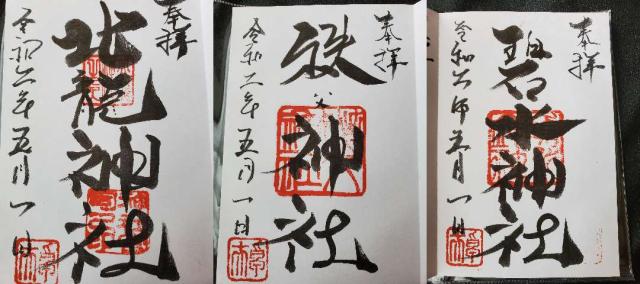 奉拝
北龍神社
令和六年五月一日
奉拝
秩父神社
令和六年五月一日
奉拝
碧水神社
令和六年五月一日